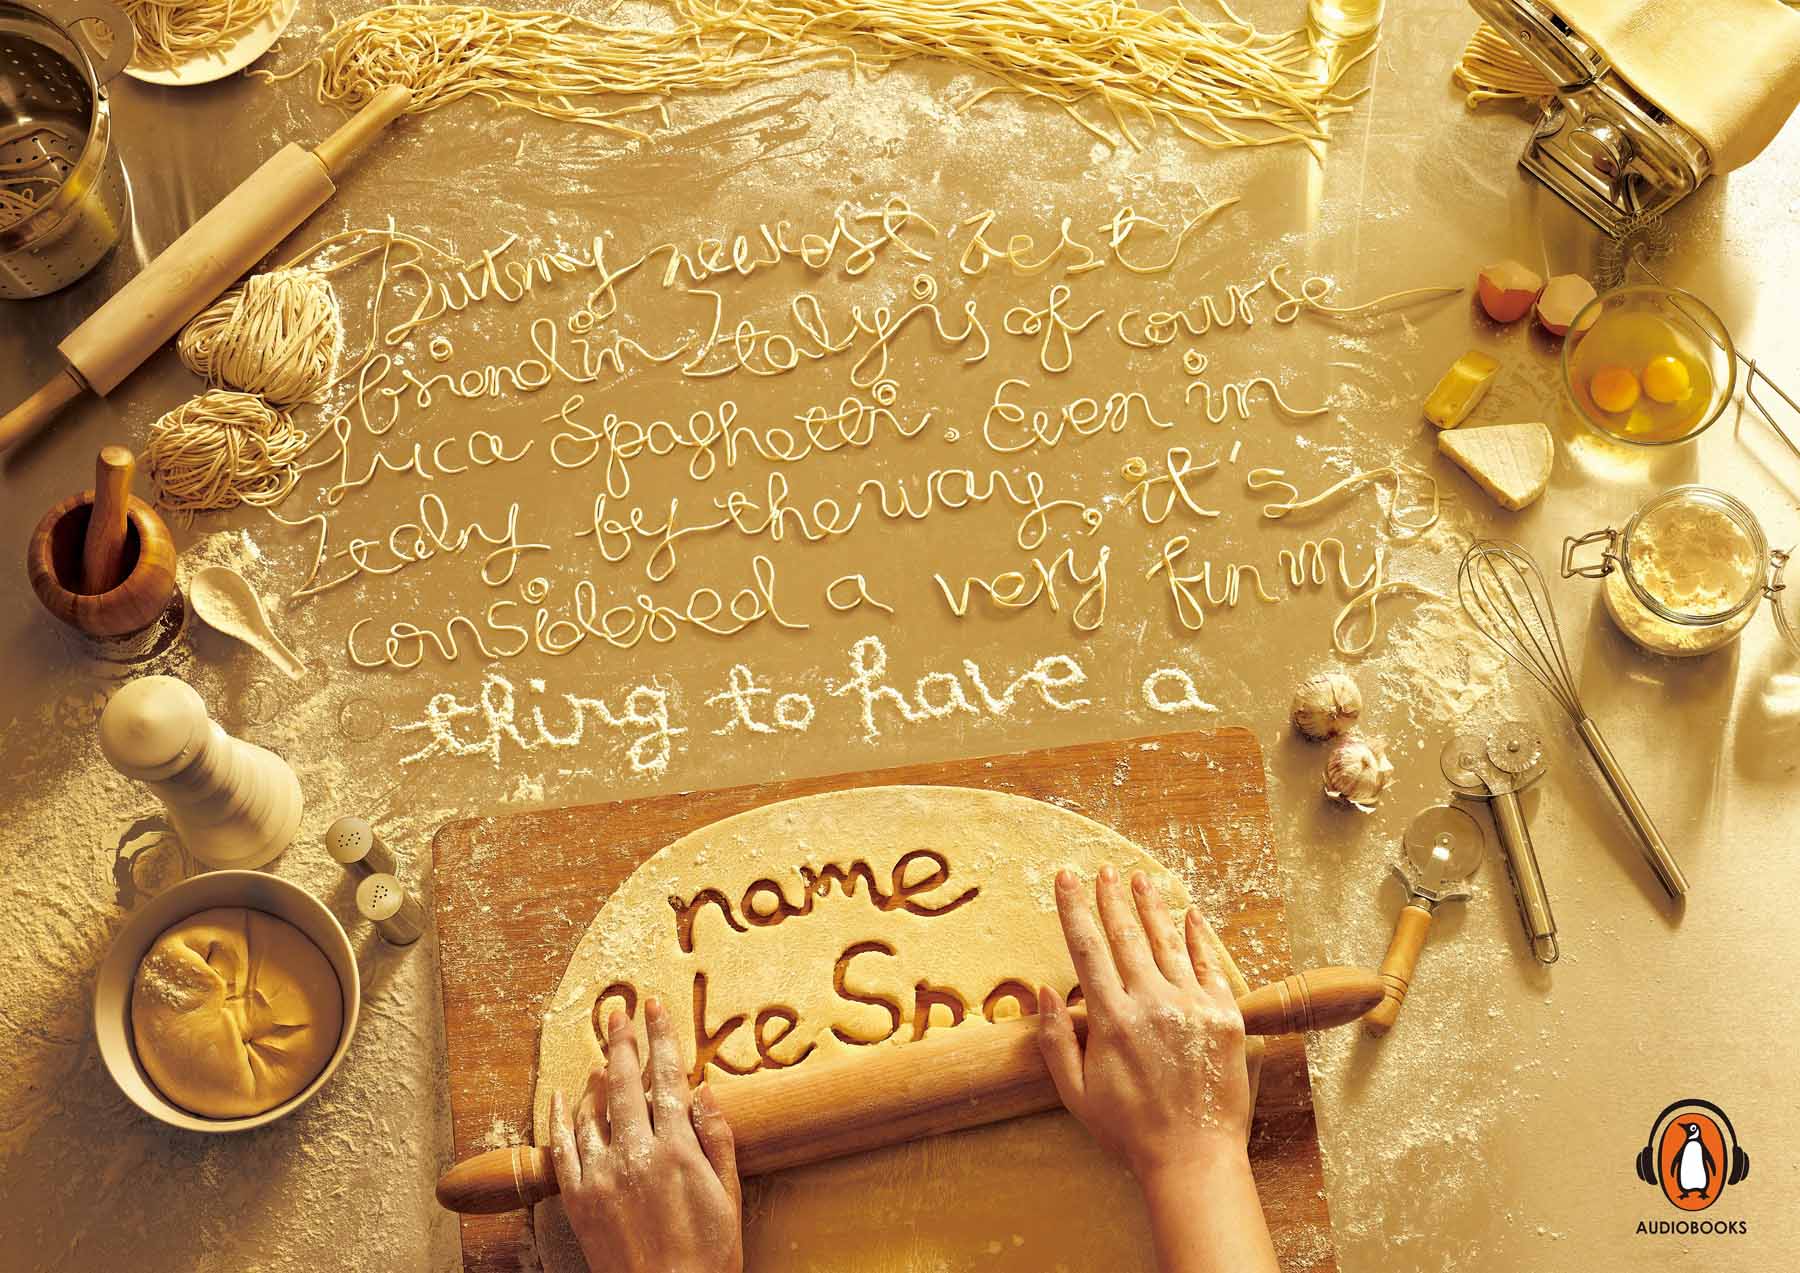 But my newest best
friend in Italy is of course
Luca Spaghetti. Even in
Italy by the way, it's
considered a very funny
thing to have a
name
like Spa
AUDIOBOOKS